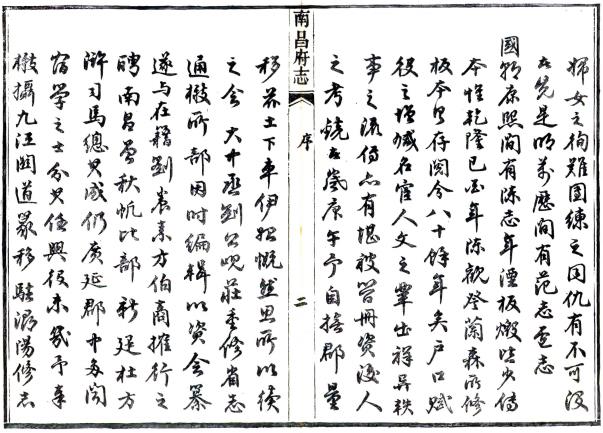 婦女之徇難團練之同仇有不可沒
者先是明萬歷間有范志盧志
國朝康熙間有陳志年湮板燬皆少傳
本惟乾隆己酉年陳觀察蘭森所修
板本具存閱今八十餘年矣戶口賦
役之增減名宦人文之輩出祥異軼
事之流傳亦有堪被管冊資後人
之考鏡者歲庚午予自撫郡量
南昌府志
序
二
移茲土下車伊始慨然思所以續
之會大中丞劉公峴莊重修省志
通檄所部因時編輯以資會纂
遂与在籍劉養素方伯商搉行之
聘南昌曾秋帆比部新建杜方
滸司馬總其成仍廣延郡中多聞
宿學之士分其任興役未幾予奉
檄攝九江關道篆移駐潯陽修志